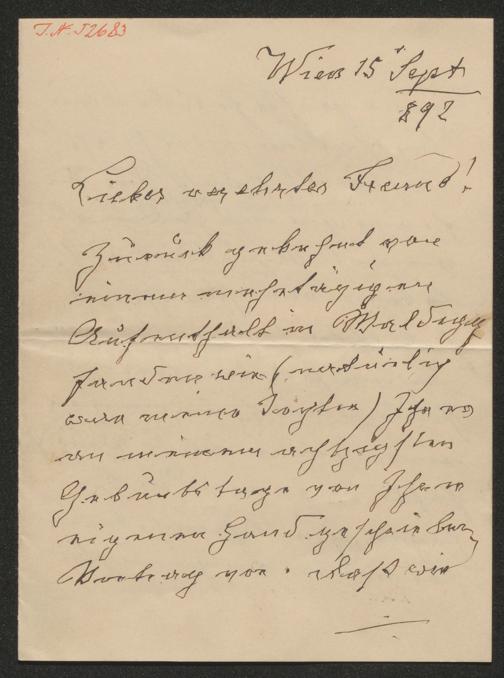 I.N. 52683
Wien 15 Sept
892
Lieber verehrter Freund!
Zurück gekehrt von
einem mehrtägigen
Aufenthalt in Waldegg
fanden wir (natürlich
war meine Tochter) Ihren
an meinem achtzigsten
Geburtstage von Ihrer
eigenen Hand geschrieben
Vortrag vor. Daß wir